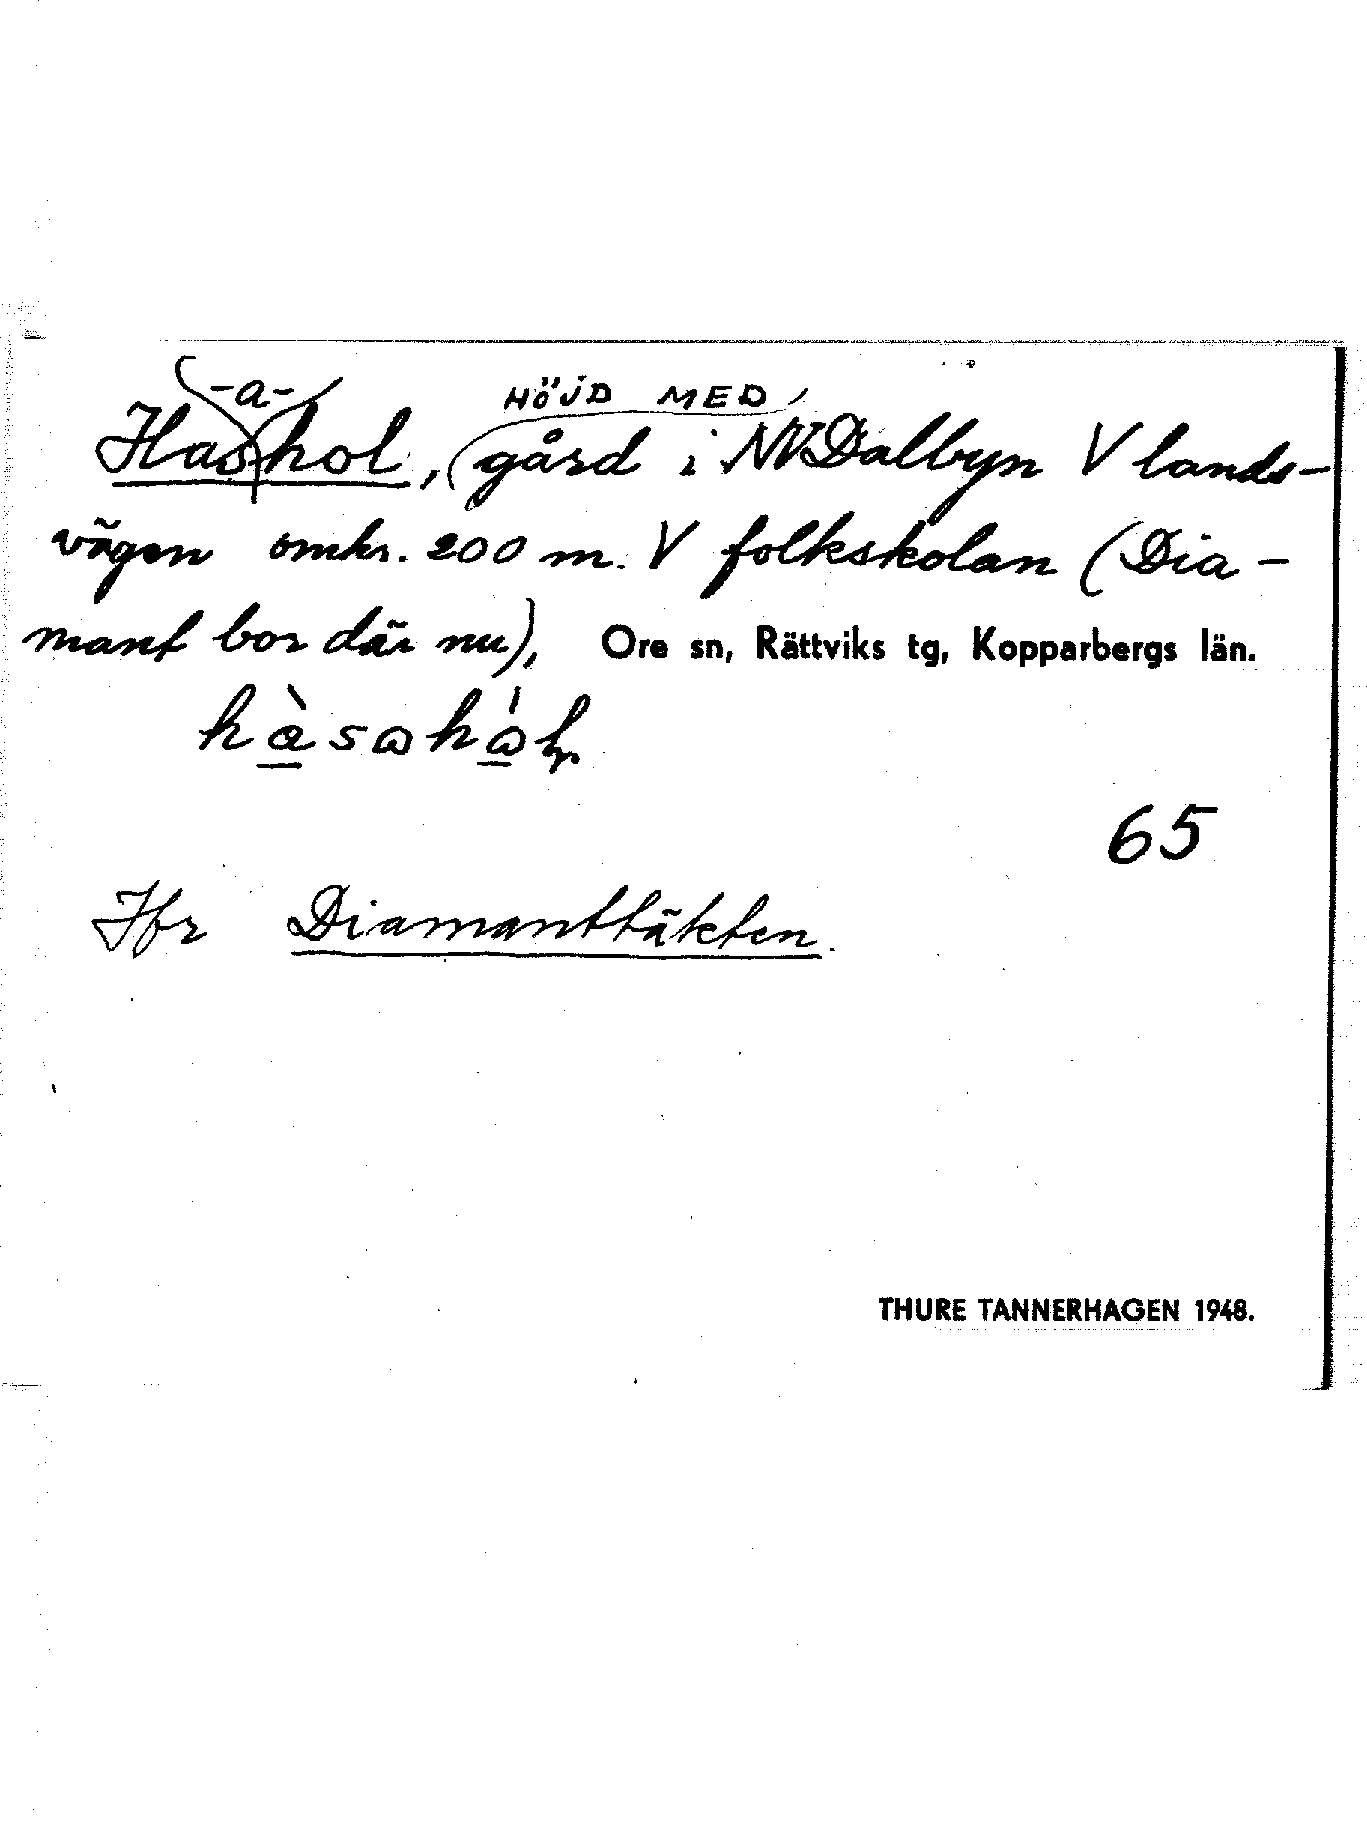 -a- HÖJD MED
Hashol, gård i NV Dalbyn V lands-
vägen omkr. 200 m. V folkskolan (Dia-
mant bor där nu), Ore sn, Rättviks tg, Kopparbergs län.
65
Jfr Diamanttäkten.
THURE TANNERHAGEN 1948.